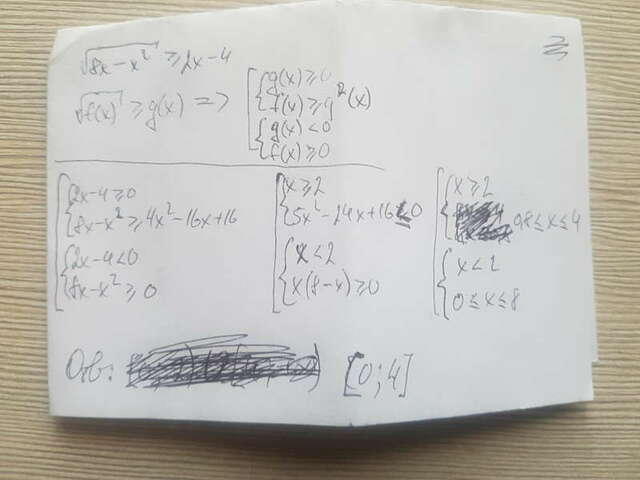 √(8x - x²) ≥ 2x - 4
√f(x) ≥ g(x) => [ { g(x) ≥ 0
f(x) ≥ g²(x)
{ g(x) < 0
f(x) ≥ 0
[ { 2x - 4 ≥ 0
8x - x² ≥ 4x² - 16x + 16
{ 2x - 4 < 0
8x - x² ≥ 0
[ { x ≥ 2
5x² - 24x + 16 ≤ 0
{ x < 2
x(8 - x) ≥ 0
[ { x ≥ 2
0,8 ≤ x ≤ 4
{ x < 2
0 ≤ x ≤ 8
Отв: [0; 4]